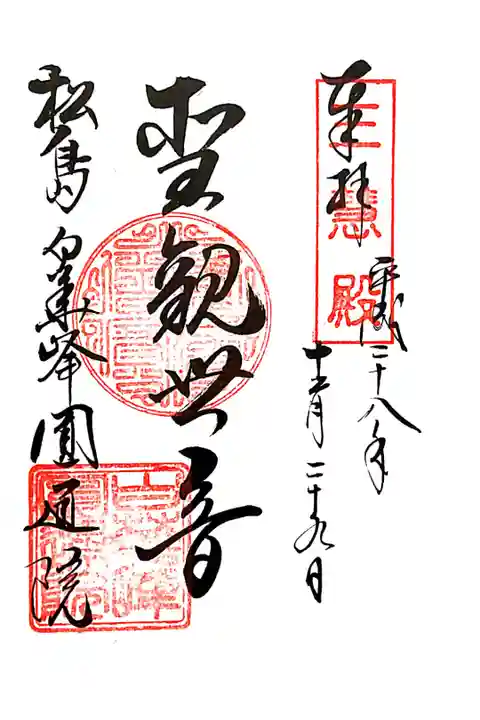 奉拝
三慧殿
平成二十八年
十二月二十九日
聖観世音
松島 白華峰 圓通院